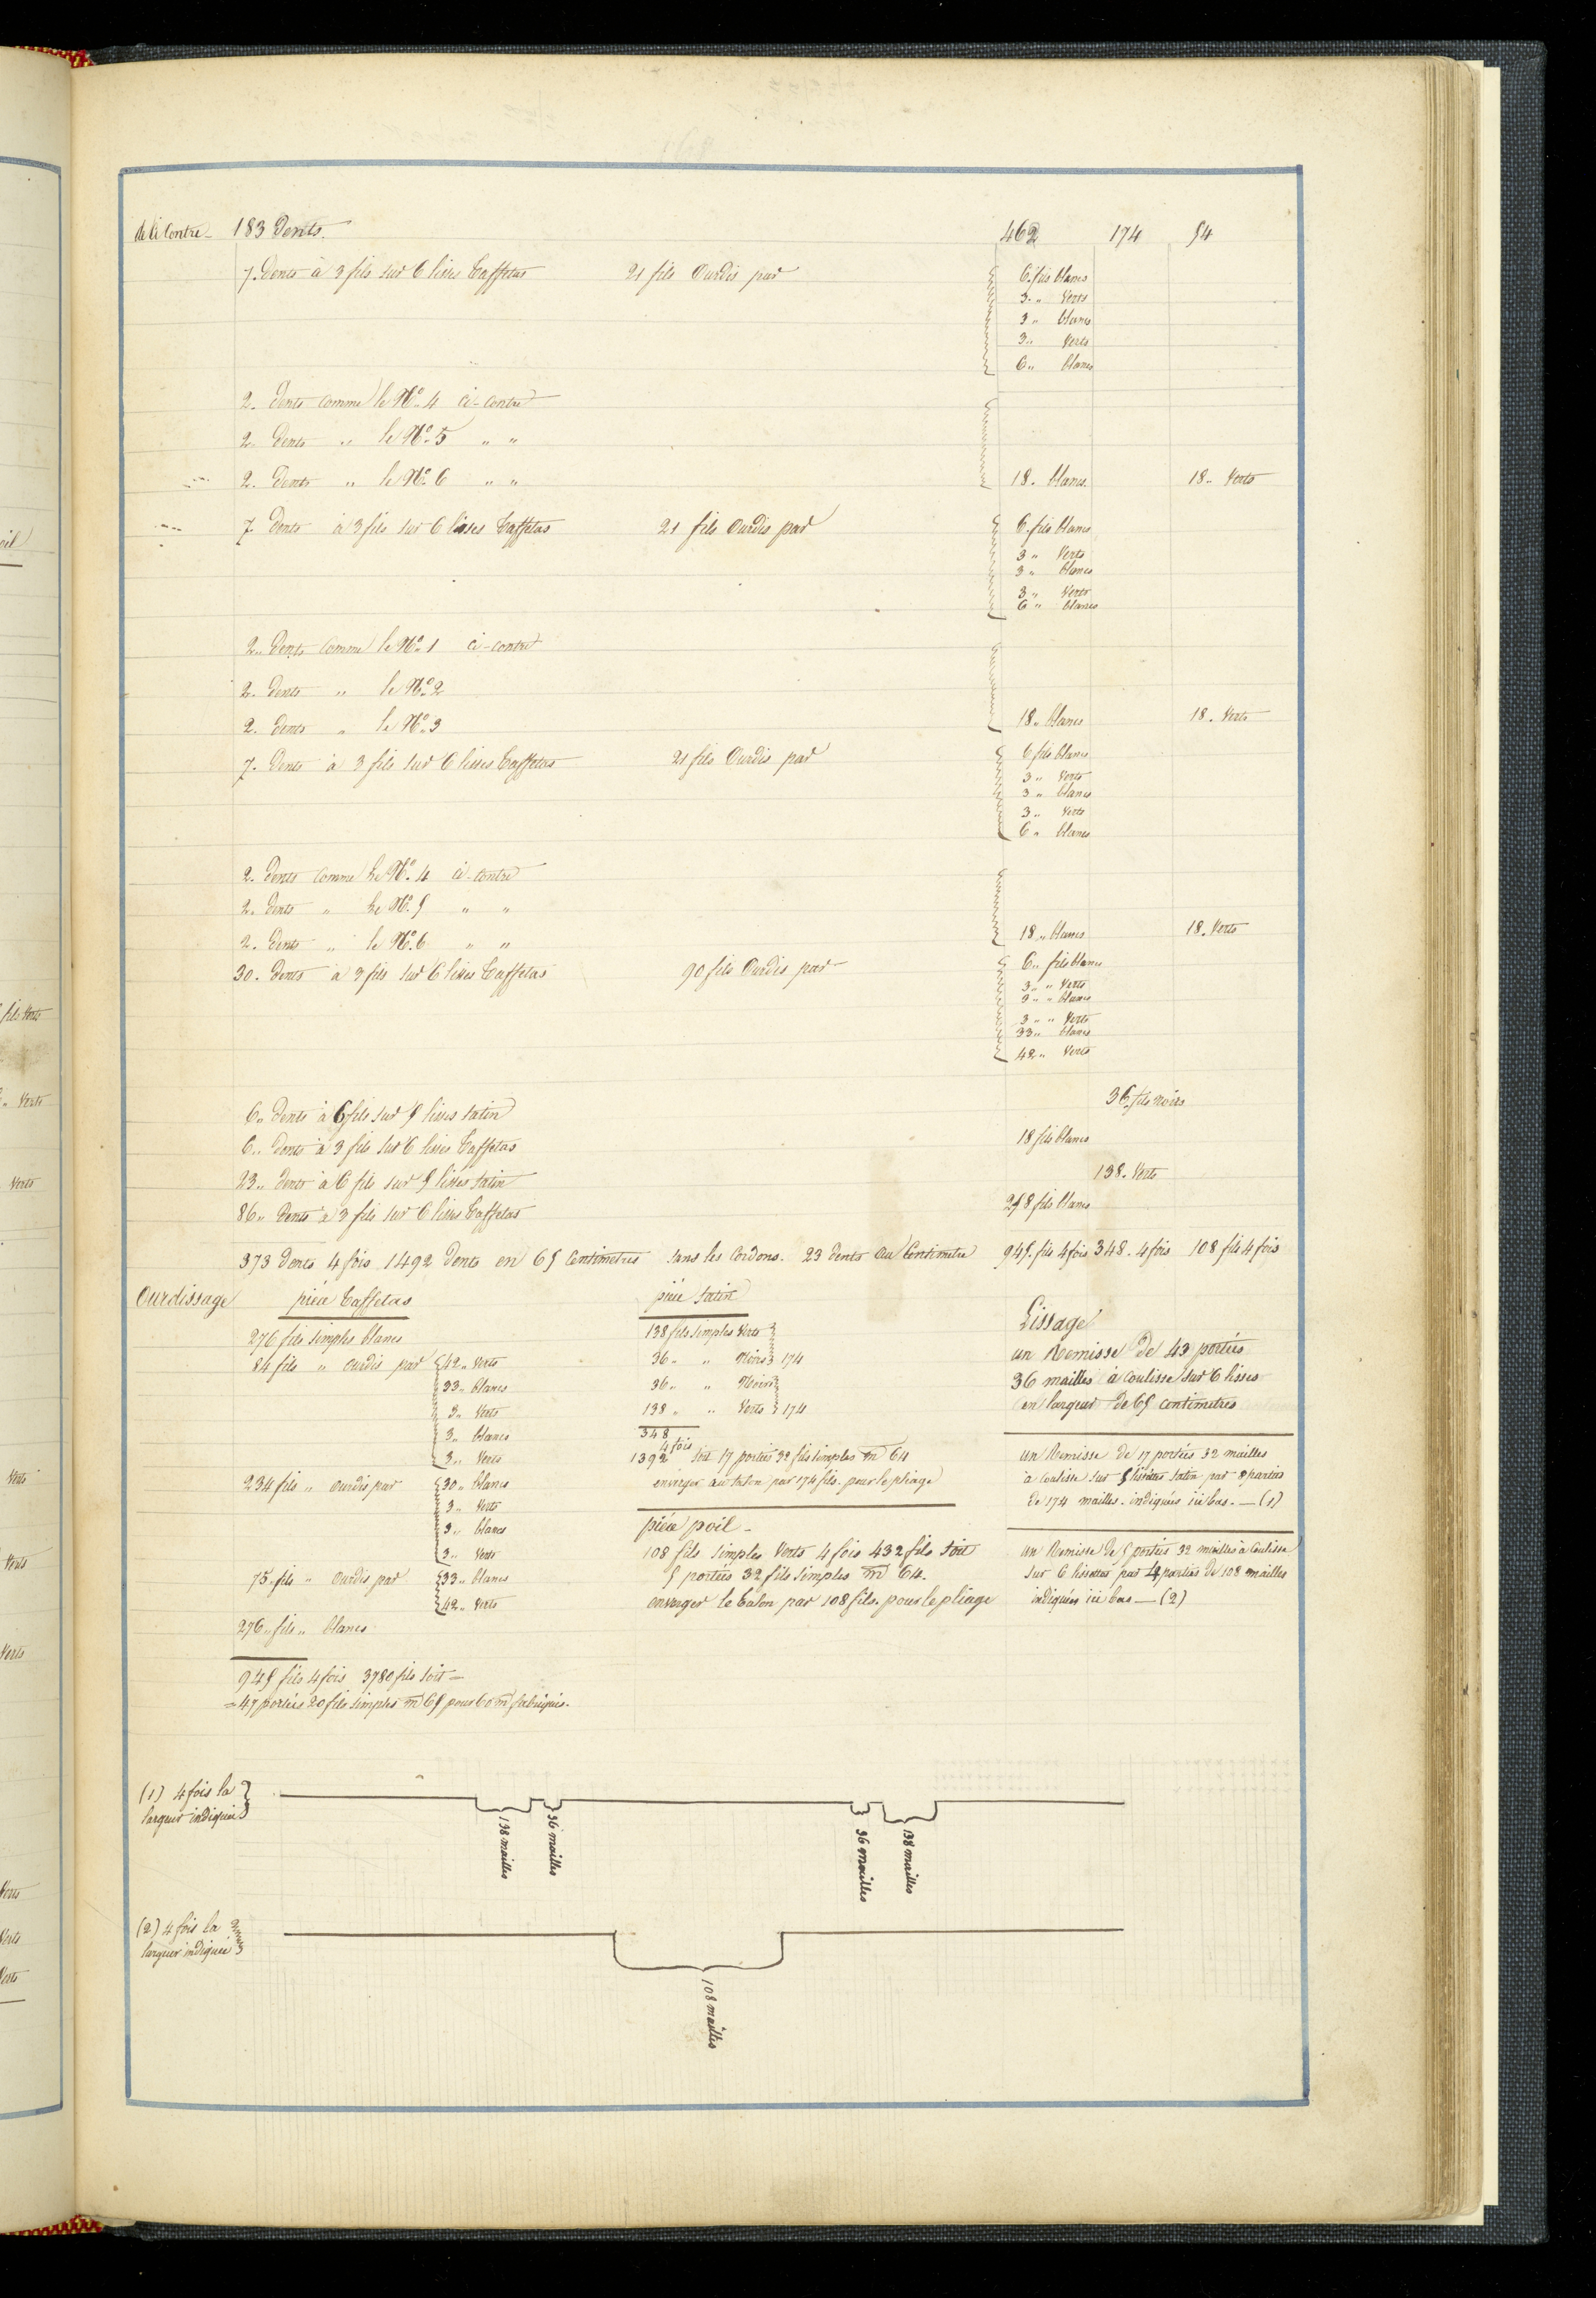 de ci Contre 183 Dents. 462 174 54
7. Dents à 3 fils sur 6 lisses Taffetas 21 fils Ourdis par 6. fils blancs
3. „ Verts
3 „ blancs
3 „ Verts
6 „ blancs
2. Dents Comme le No. 4 ci-contre
2. Dents „ le No. 5 „ „
2. Dents „ le No. 6 „ „ 18. blancs. 18. Verts
7. Dents à 3 fils sur 6 lisses Taffetas 21 fils Ourdis par 6. fils blancs
3 „ Verts
3 „ blancs
3 „ Verts
6 „ blancs
2. Dents Comme le No. 1 ci-contre
2. Dents „ le No. 2
2. Dents „ le No. 3 18. blancs 18. Verts
7. Dents à 3 fils sur 6 lisses Taffetas 21 fils Ourdis par 6 fils blancs
3 „ Verts
3 „ blancs
3 „ Verts
6 „ blancs
2. Dents Comme le No. 4 ci-contre
2. Dents „ le No. 5 „ „
2. Dents „ le No. 6 „ „ 18 „ blancs 18. Verts
30. Dents à 3 fils sur 6 lisses Taffetas 90 fils Ourdis par 6 „ fils blancs
3 „ „ Verts
3 „ „ blancs
3 „ „ Verts
33 „ blancs
42 „ Verts
6 „ Dents à 6 fils sur 5 lisses Satin 36. fils noirs
6 „ Dents à 3 fils sur 6 lisses Taffetas 18 fils blancs
23 „ Dents à 6 fils sur 5 lisses Satin 138. Verts
86 „ Dents à 3 fils sur 6 lisses Taffetas 258 fils blancs
373 Dents 4 fois 1492 Dents en 65 Centimetres Sans les Cordons. 23 Dents au Centimetre 945. fils 4 fois 348. 4 fois 108 fils 4 fois
Ourdissage
pièce Taffetas
276 fils simples blancs
84 fils „ Ourdis par 42 „ Verts
33 „ blancs
3 „ Verts
3 „ blancs
3 „ Verts
234 fils „ Ourdis par 30 „ blancs
3 „ Verts
3 „ blancs
3 „ Verts
75. fils „ Ourdis par 33 „ blancs
42 „ Verts
276 „ fils „ blancs
945 fils 4 fois 3780 fils soit =
= 47 portées 20 fils simples m 65 pour 60 m fabriqués.
pièce Satin
138 fils simples Verts
36 „ „ Noirs 174
36 „ „ Noirs
138 „ „ Verts 174
348
4 fois
1392 soit 17 portées 32 fils simples m 64
enverger au talon par 174 fils. pour le pliage
pièce poil
108 fils simples Verts 4 fois 432 fils soit
5 portées 32 fils simples m 64.
enverger le talon par 108 fils. pour le pliage
Lissage
un Remisse de 43 portées
36 mailles à coulisse sur 6 lisses
en largeur de 65 centimetres
un Remisse de 17 portées 32 mailles
à Coulisse sur 5 lisettes Satin par 8 parties
de 174 mailles. indiquées ici bas. — (1)
un Remisse de 5 portées 32 mailles à Coulisse
sur 6 lissettes par 4 parties de 108 mailles
indiquées ici bas — (2)
(1) 4 fois la
largeur indiquée
138 mailles
36 mailles
36 mailles
138 mailles
(2) 4 fois la
largeur indiquée
108 mailles
oil
fils Verts
„ Verts
Verts
Verts
Verts
Verts
Verts
Verts
Verts